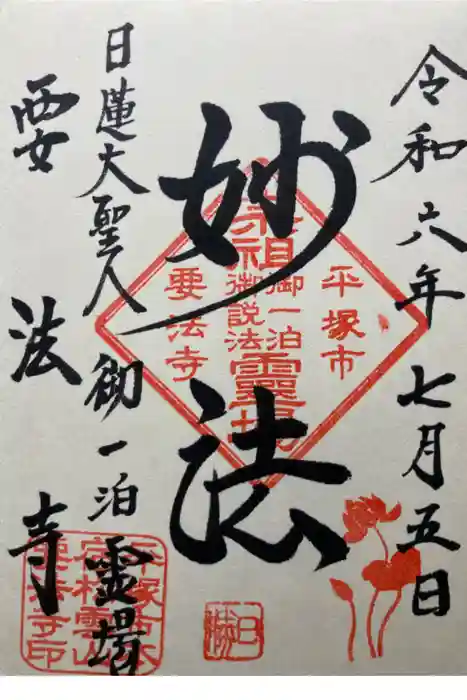 令和六年七月五日
妙法
日蓮大聖人御一泊霊場
要法寺
平塚市
宗祖御説法
御一泊
靈場
要法寺